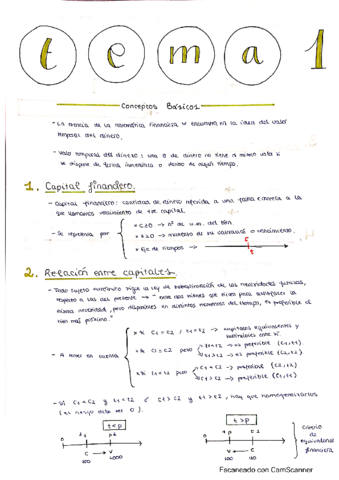 tema 1
Conceptos Básicos
- La esencia de la matemática financiera se encuentra en la idea del valor
temporal del dinero.
- Valor temporal del dinero: una € de dinero no tiene el mismo valor si
se dispone de forma inmediata o dentro de algún tiempo.
1. Capital financiero.
- Capital financiero: cantidad de dinero referida a una fecha concreta a la
que llamamos vencimiento de ese capital.
- Se representa por
* C≥0 → nº de u.m. del bien
* t≥0 → momento de su vencimiento.
* Eje de tiempos →
C
t
2. Relación entre capitales.
- Todo sujeto económico sigue la ley de
respecto a las del presente → " entre dos bienes que sirven para satisfacer la
misma necesidad, pero disponibles en distintos momentos del tiempo, es preferible el
bien más próximo."
- A tener en cuenta
* Si C1 = C2 / t1 = t2 → capitales equivalentes y
* Si C1 = C2 pero
t1 < t2 → es preferible (C1, t1)
t1 > t2 → es preferible (C2, t2)
* Si t1 = t2 pero
C1 < C2 → preferible (C2, t2)
C1 > C2 → preferible (C1, t1)
- Si C1 < C2 y t1 < t2 ó C1 > C2 y t1 > t2, hay que homogeneizarlos
t<p
t>p
0
C → V
0
V ← C
criterio
de
equivalencia
financiera
Escaneado con CamScanner